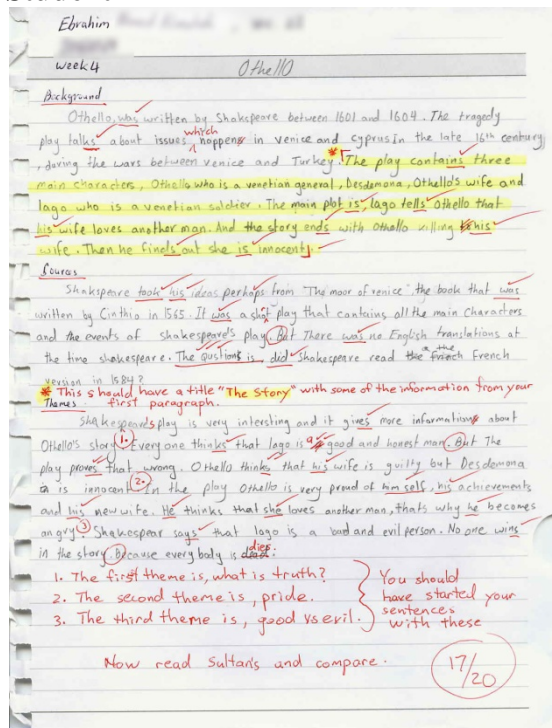 Ebrahim
Week 4
Othello
Background
Othello, was written by Shakspeare between 1601 and 1604. The tragedy
play talks about issues which happens in venice and cyprus In the late 16th century
, during the wars between venice and Turkey. * The play contains three
main characters, Othello who is a venetian general, Desdemona, Othello's wife and
Iago who is a venetian soldier. The main plot is, Iago tells Othello that
his wife loves another man. And the story ends with Othello killing his
wife. Then he finds out she is innocent.
Sources
Shakspeare took his ideas perhaps from "The moor of venice" the book that was
written by Cinthio in 1565. It was a short play that contains all the main characters
and the events of shakespeare's play. But There was no English translations at
the time shakespeare. The qustions is, did Shakespeare read the french French
version in 1584?
* This should have a title "The Story" with some of the information from your
first paragraph.
Themes
Shakespeare's play is very intersting and it gives more informations about
Othello's story. 1. Every one thinks that Iago is a good and honest man. But The
play proves that wrong. Othello thinks that his wife is guilty but Desdemona
is innocent 2. In the play Othello is very proud of him self, his achievements
and his new wife. He thinks that she loves another man, thats why he becomes
angry. 3 Shakespear says that Iago is a bad and evil person. No one wins
in the story. Because every body is dead. dies.
1. The first theme is, what is truth?
2. The second theme is, pride.
3. The third theme is, good vs evil.
You should
have started your
sentences
with these
Now read Sultan's and compare.
17/20